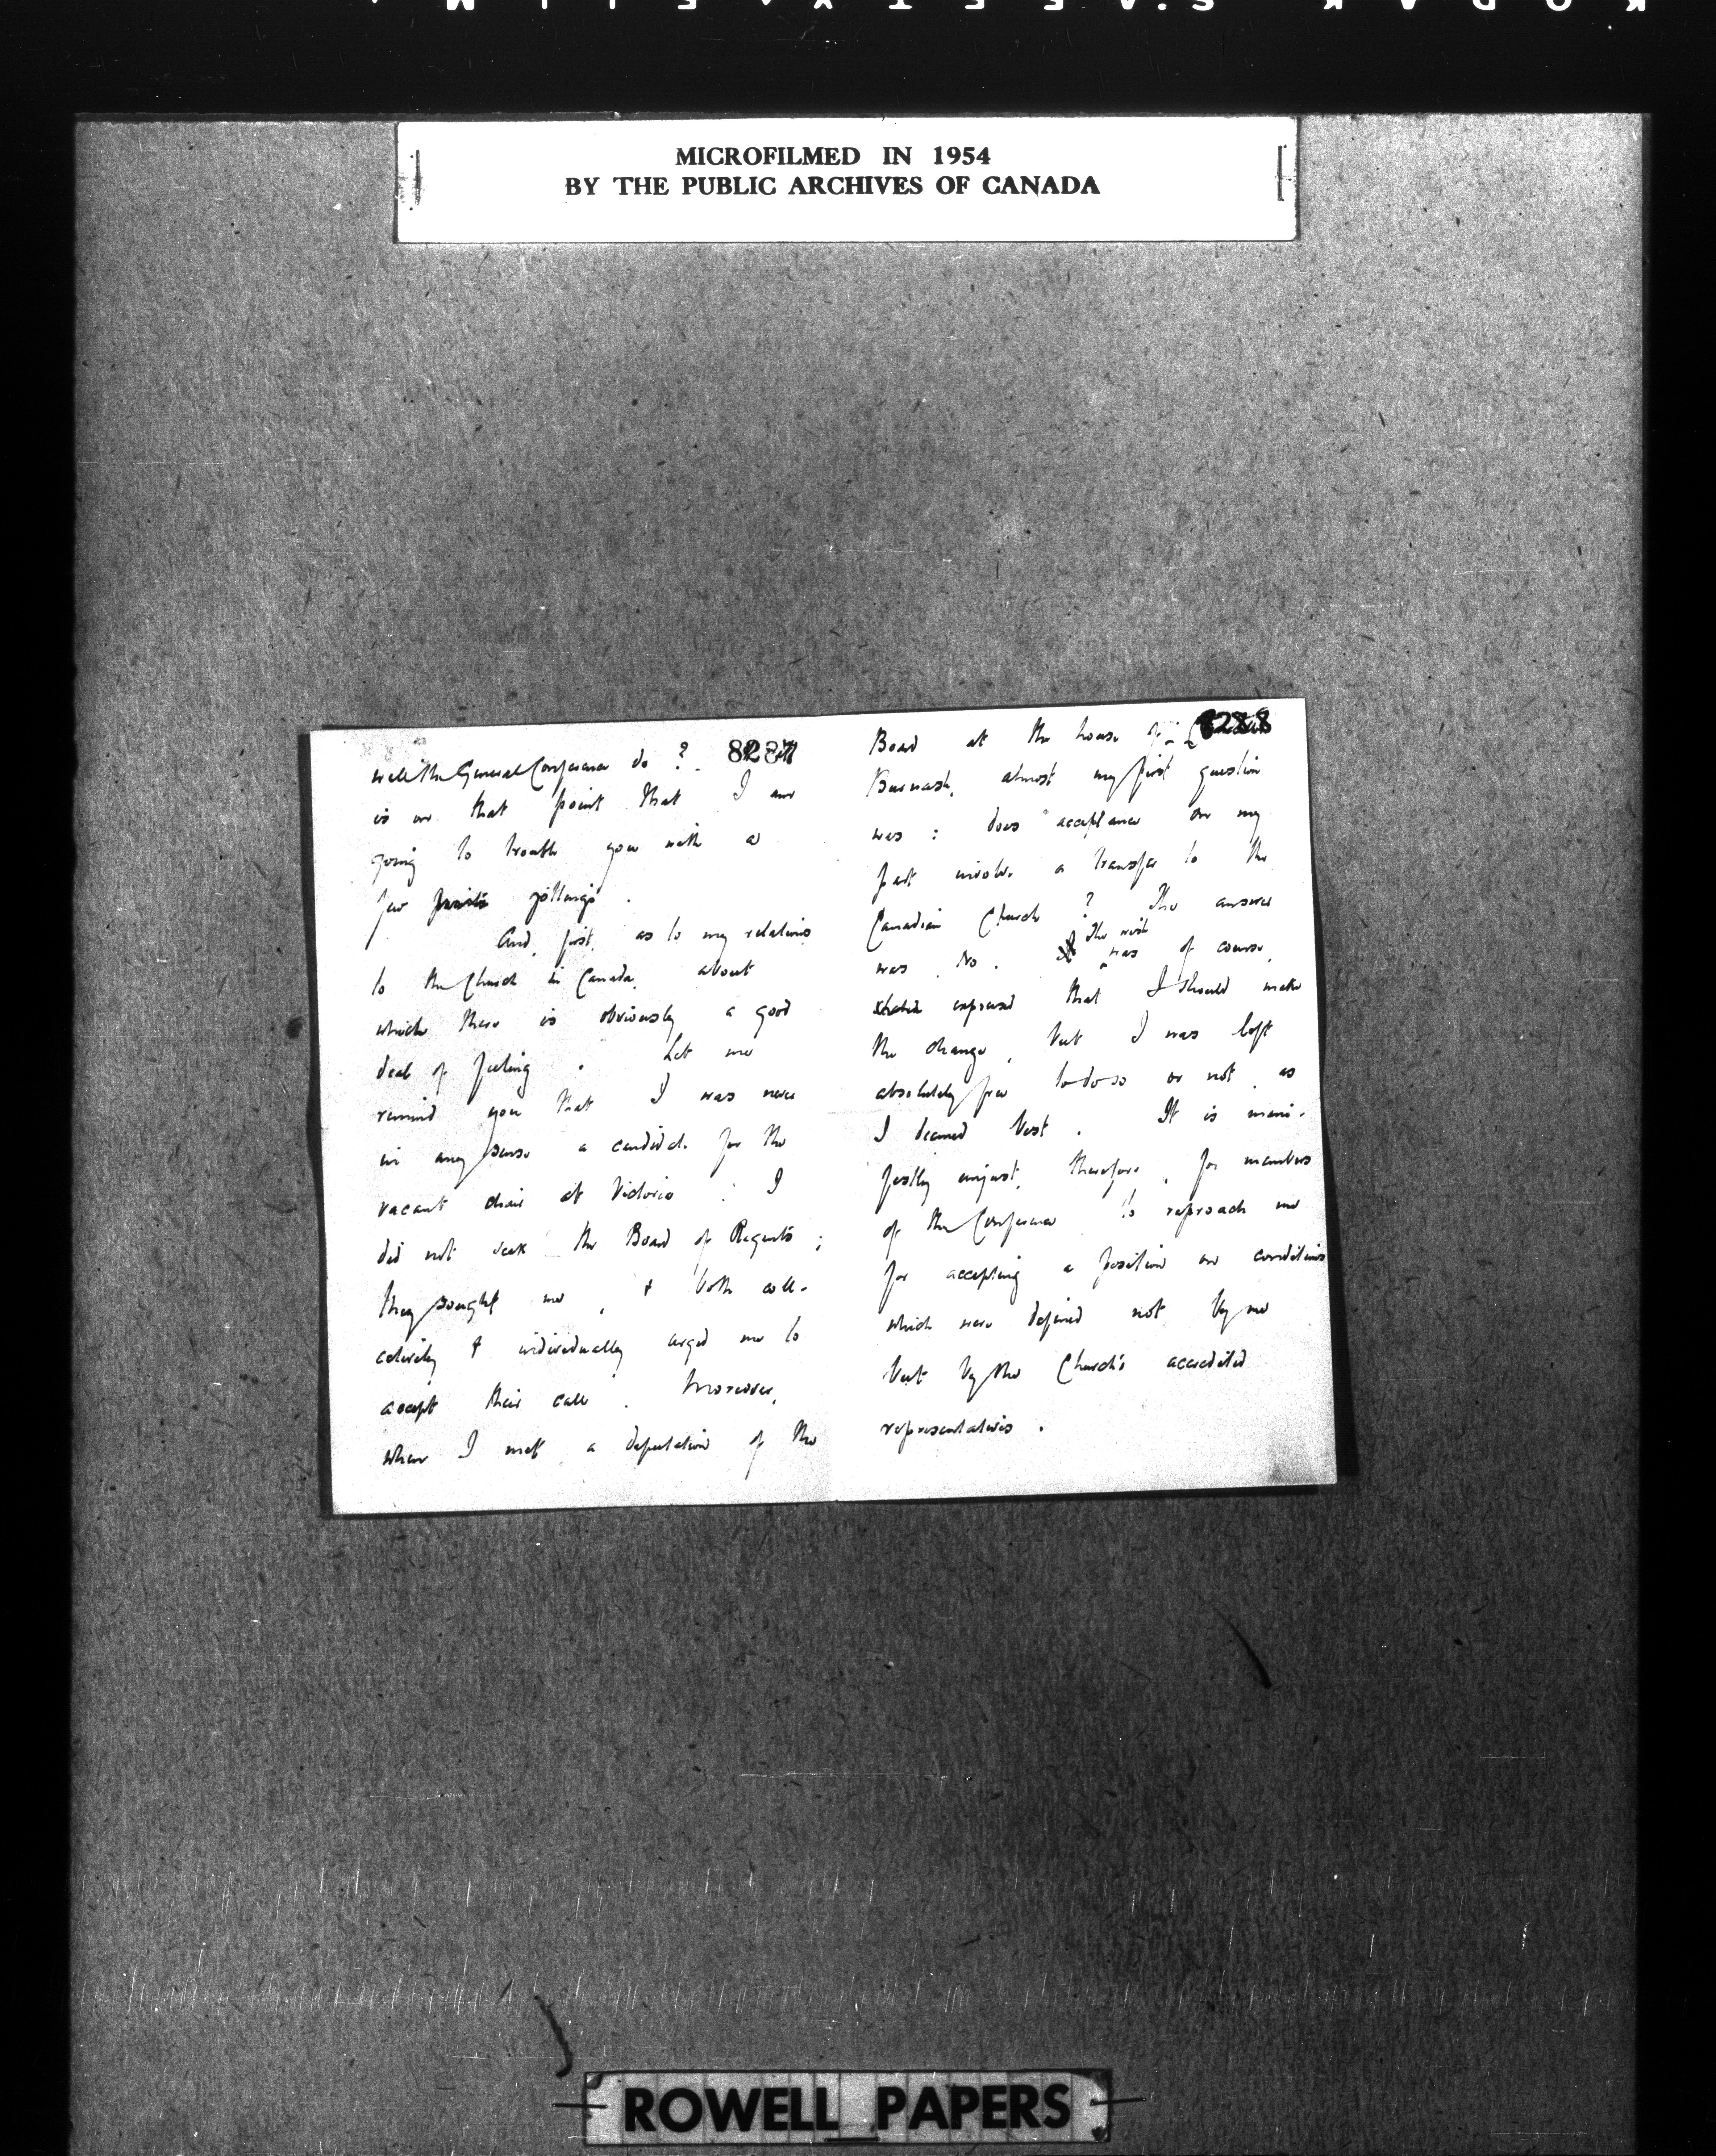 KODAK SAFETY FILM
MICROFILMED IN 1954
BY THE PUBLIC ARCHIVES OF CANADA
8287
will the General Conference do ?
is on that point that I am
going to trouble you with a
few jottings .
And, first, as to my relations
to the Church in Canada, about
which there is obviously a good
deal of feeling . Let me
remind you that I was never
in any sense a candidate for the
vacant chair at Victoria : I
did not seek the Board of Regents ;
they sought me , & both coll-
ectively & individually urged me to
accept their call . Moreover,
when I met a deputation of the
8288
Board at the house of
Burwash, almost my first question
was : does acceptance on my
part involve a transfer to the
Canadian Church ? The answer
was No . The wish was of course,
expressed that I should make
the change , but I was left
absolutely free to do so or not , as
I deemed best . It is mani-
festly unjust, therefore , for members
of the Conference to reproach me
for accepting a position on conditions
which were defined not by me
but by the Church's accredited
representatives .
ROWELL PAPERS